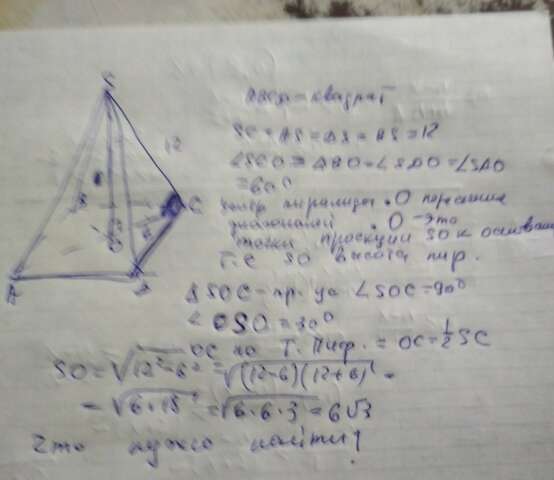 S
12
C
B
O
A
D
ABCD - квадрат
SC = AS = DS = BS = 12
∠SCO = ∠SBO = ∠SDO = ∠SAO
= 60°
центр пирамиды .O пересечение
диагоналей .O - это
точки проекции SO к основан
т.е SO высота пир.
ΔSOC - пр. уг ∠SOC = 90°
∠OSO = 30°
OC по Т. Пиф. = OC = 1/2 SC
SO = √12² - 6² = √(12-6)(12+6) =
= √6·18 = √6·6·3 = 6√3
Что нужно найти?